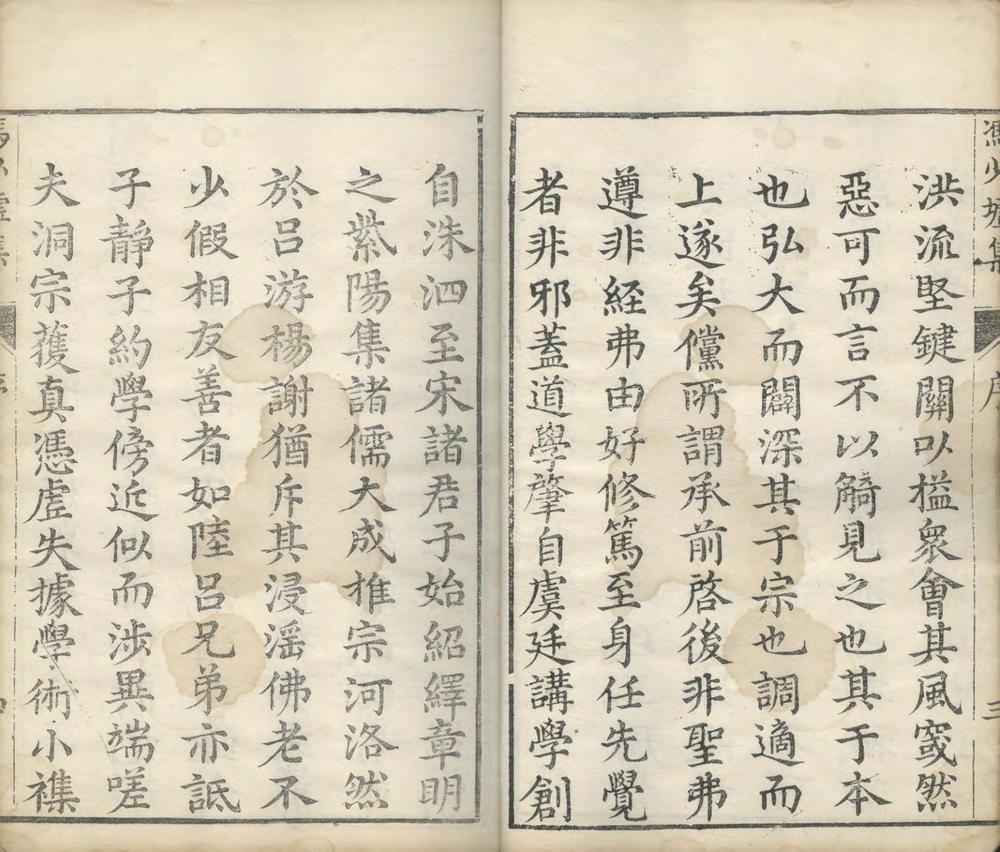 馮少墟集
序
三
洪流堅鍵關以檻衆會其風窾然
惡可而言不以觭見之也其于本
也弘大而闢深其于宗也調適而
上遂矣儻所謂承前啓後非聖弗
遵非經弗由好修篤至身任先覺
者非邪蓋道學肇自虞廷講學創
自洙泗至宋諸君子始紹繹章明
之紫陽集諸儒大成推宗河洛然
於呂游楊謝猶斥其浸滛佛老不
少假相友善者如陸呂兄弟亦詆
子靜子約學傍近似而涉異端嗟
夫洞宗獲真憑虛失據學術小襍
馮少墟集